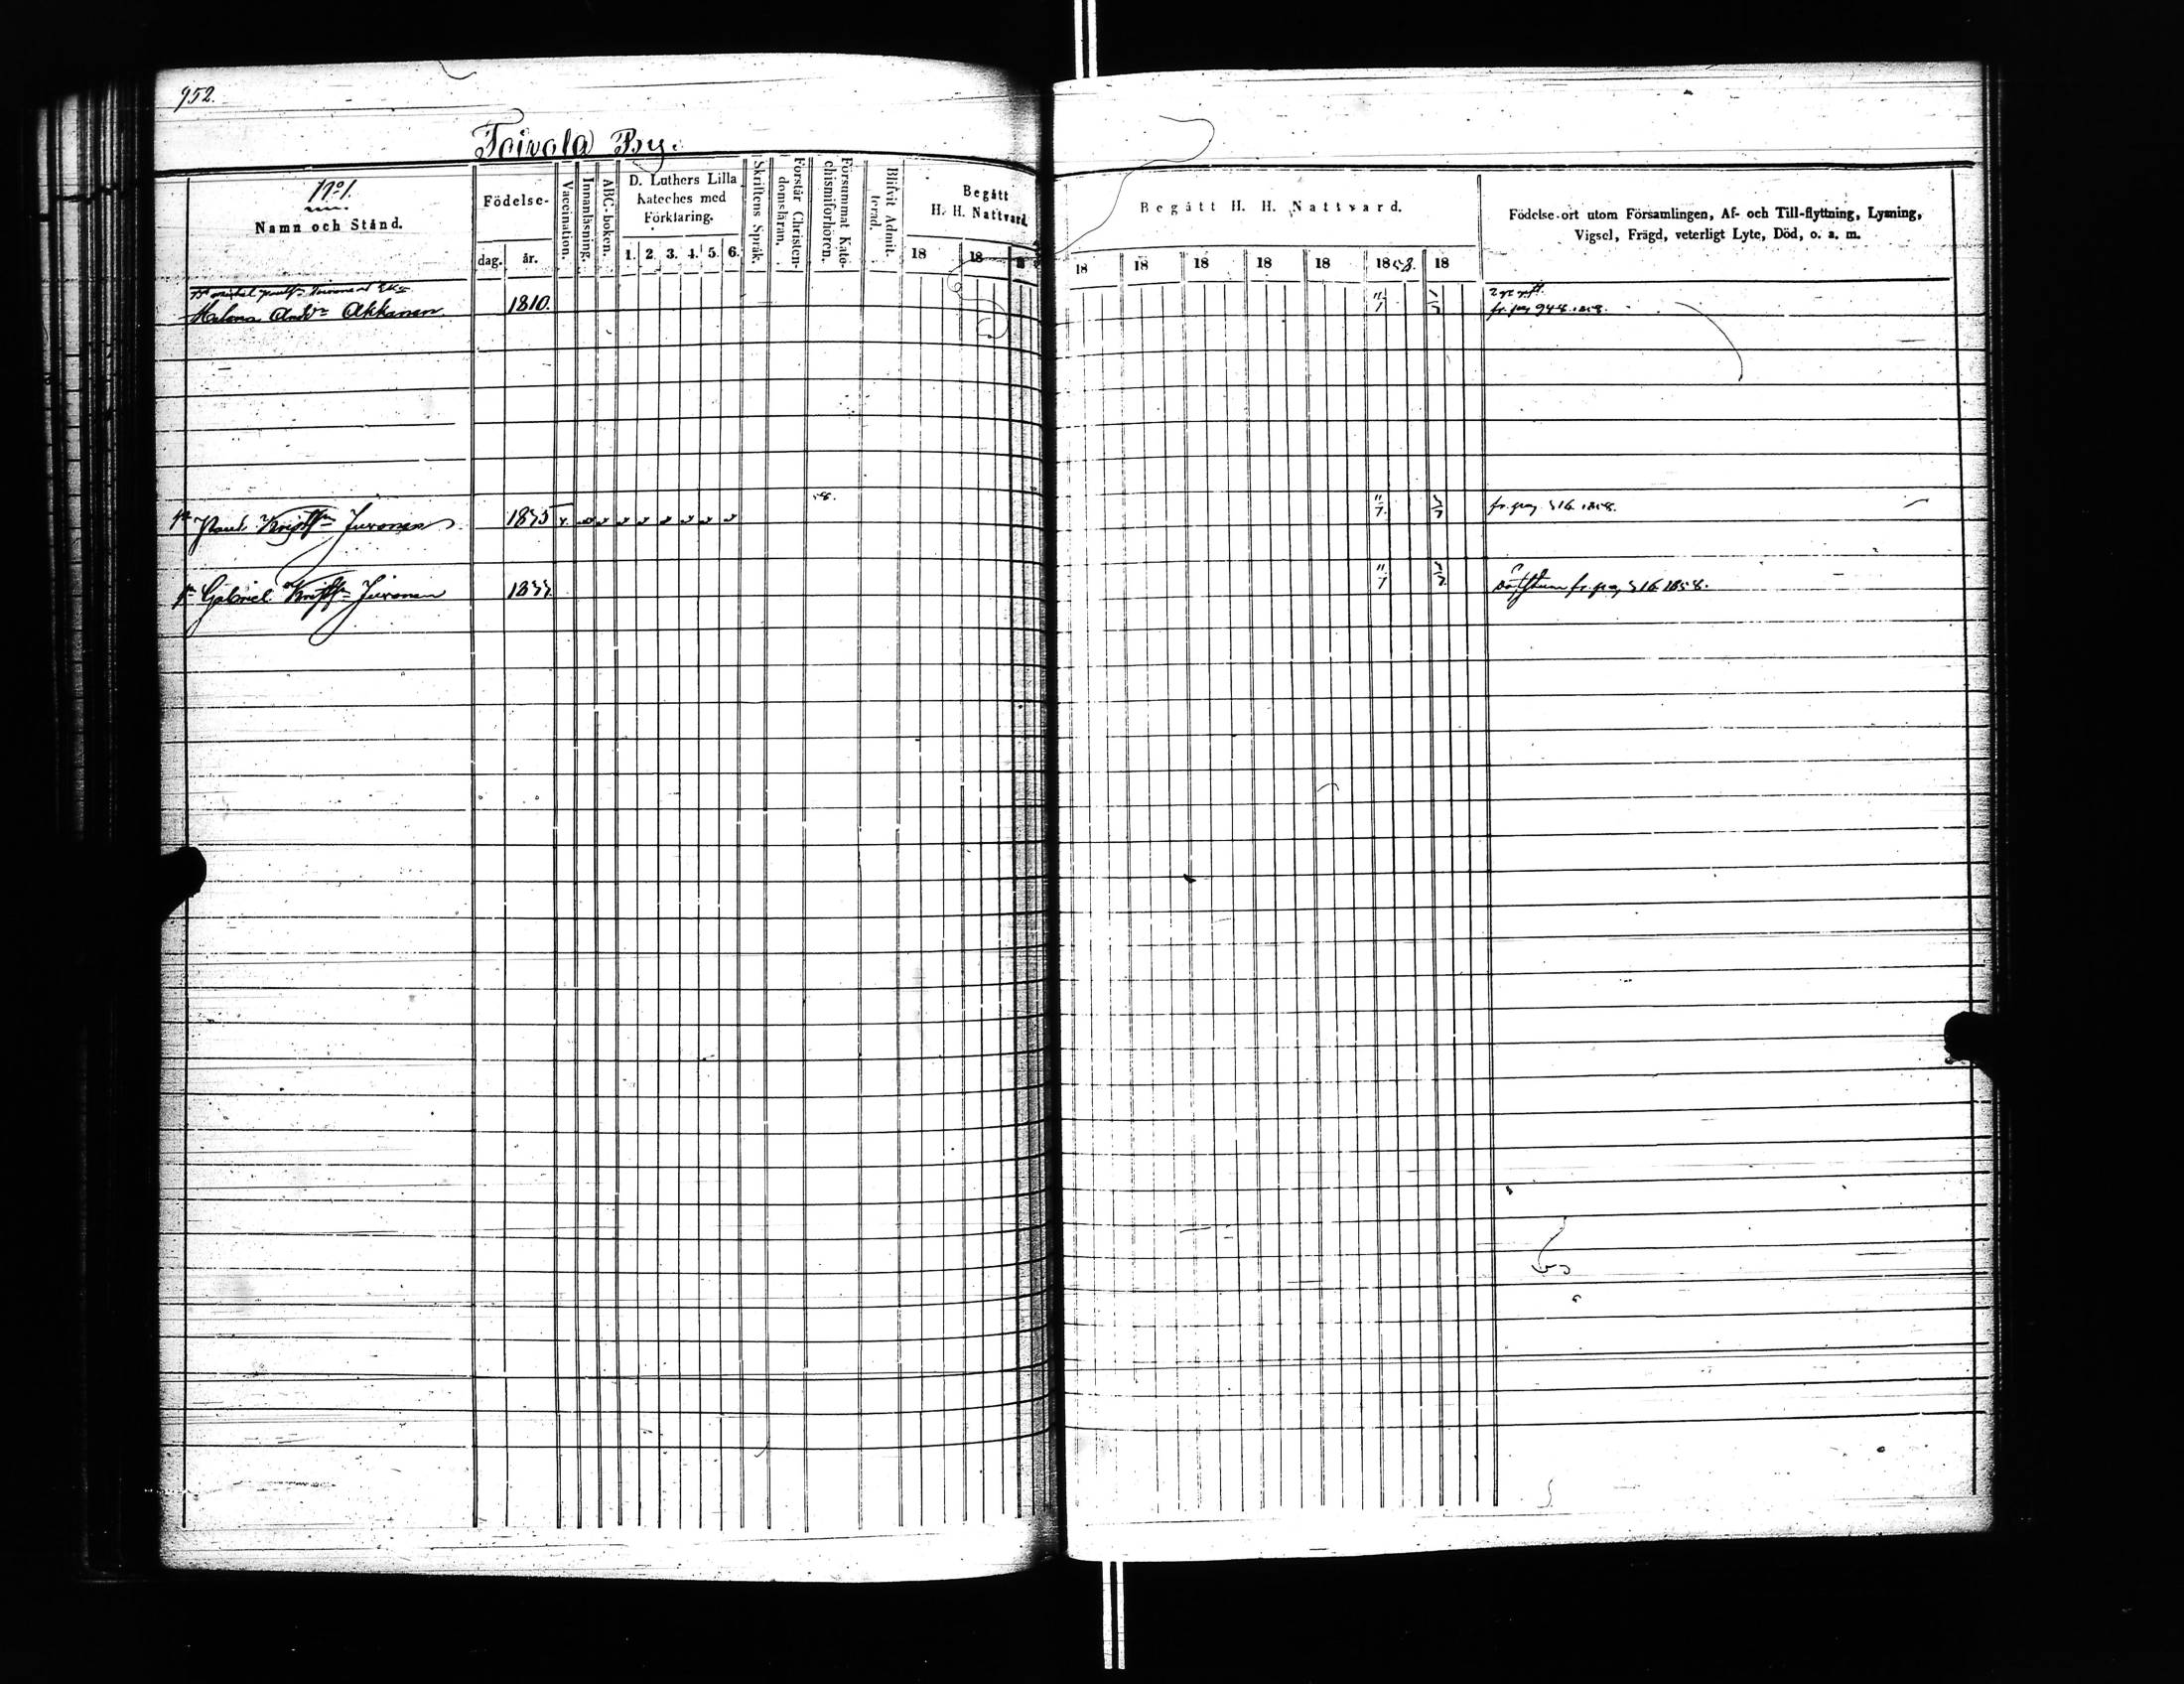 952.
Toivola By.
No 1.
Namn och Stånd.
Födelse-
dag. år.
Vaccination.
Innanläsning.
ABC-boken.
D. Luthers Lilla
Kateches med
Förklaring.
1. 2. 3. 4. 5. 6.
Skriftens Språk.
Förstår Christen-
domsläran.
Försummat Kate-
chismiförhören.
Blifvit Admit-
terad.
Begått
H. H. Nattvard.
18 18
Begått H. H. Nattvard.
18 18 18 18 18 1858. 18
Födelse-ort utom Församlingen, Af- och Till-flyttning, Lysning,
Vigsel, Frägd, veterligt Lyte, Död, o. a. m.
Helena Akkanen 1810. 11/7 fr. pag 948. 1858.
Paul Kristffn Juvonen 1835 v. 58. 11/7 fr. pag 316. 1858.
Gabriel Kristffn Juvonen 11/7 Döfstum fr. pag 316 1858.